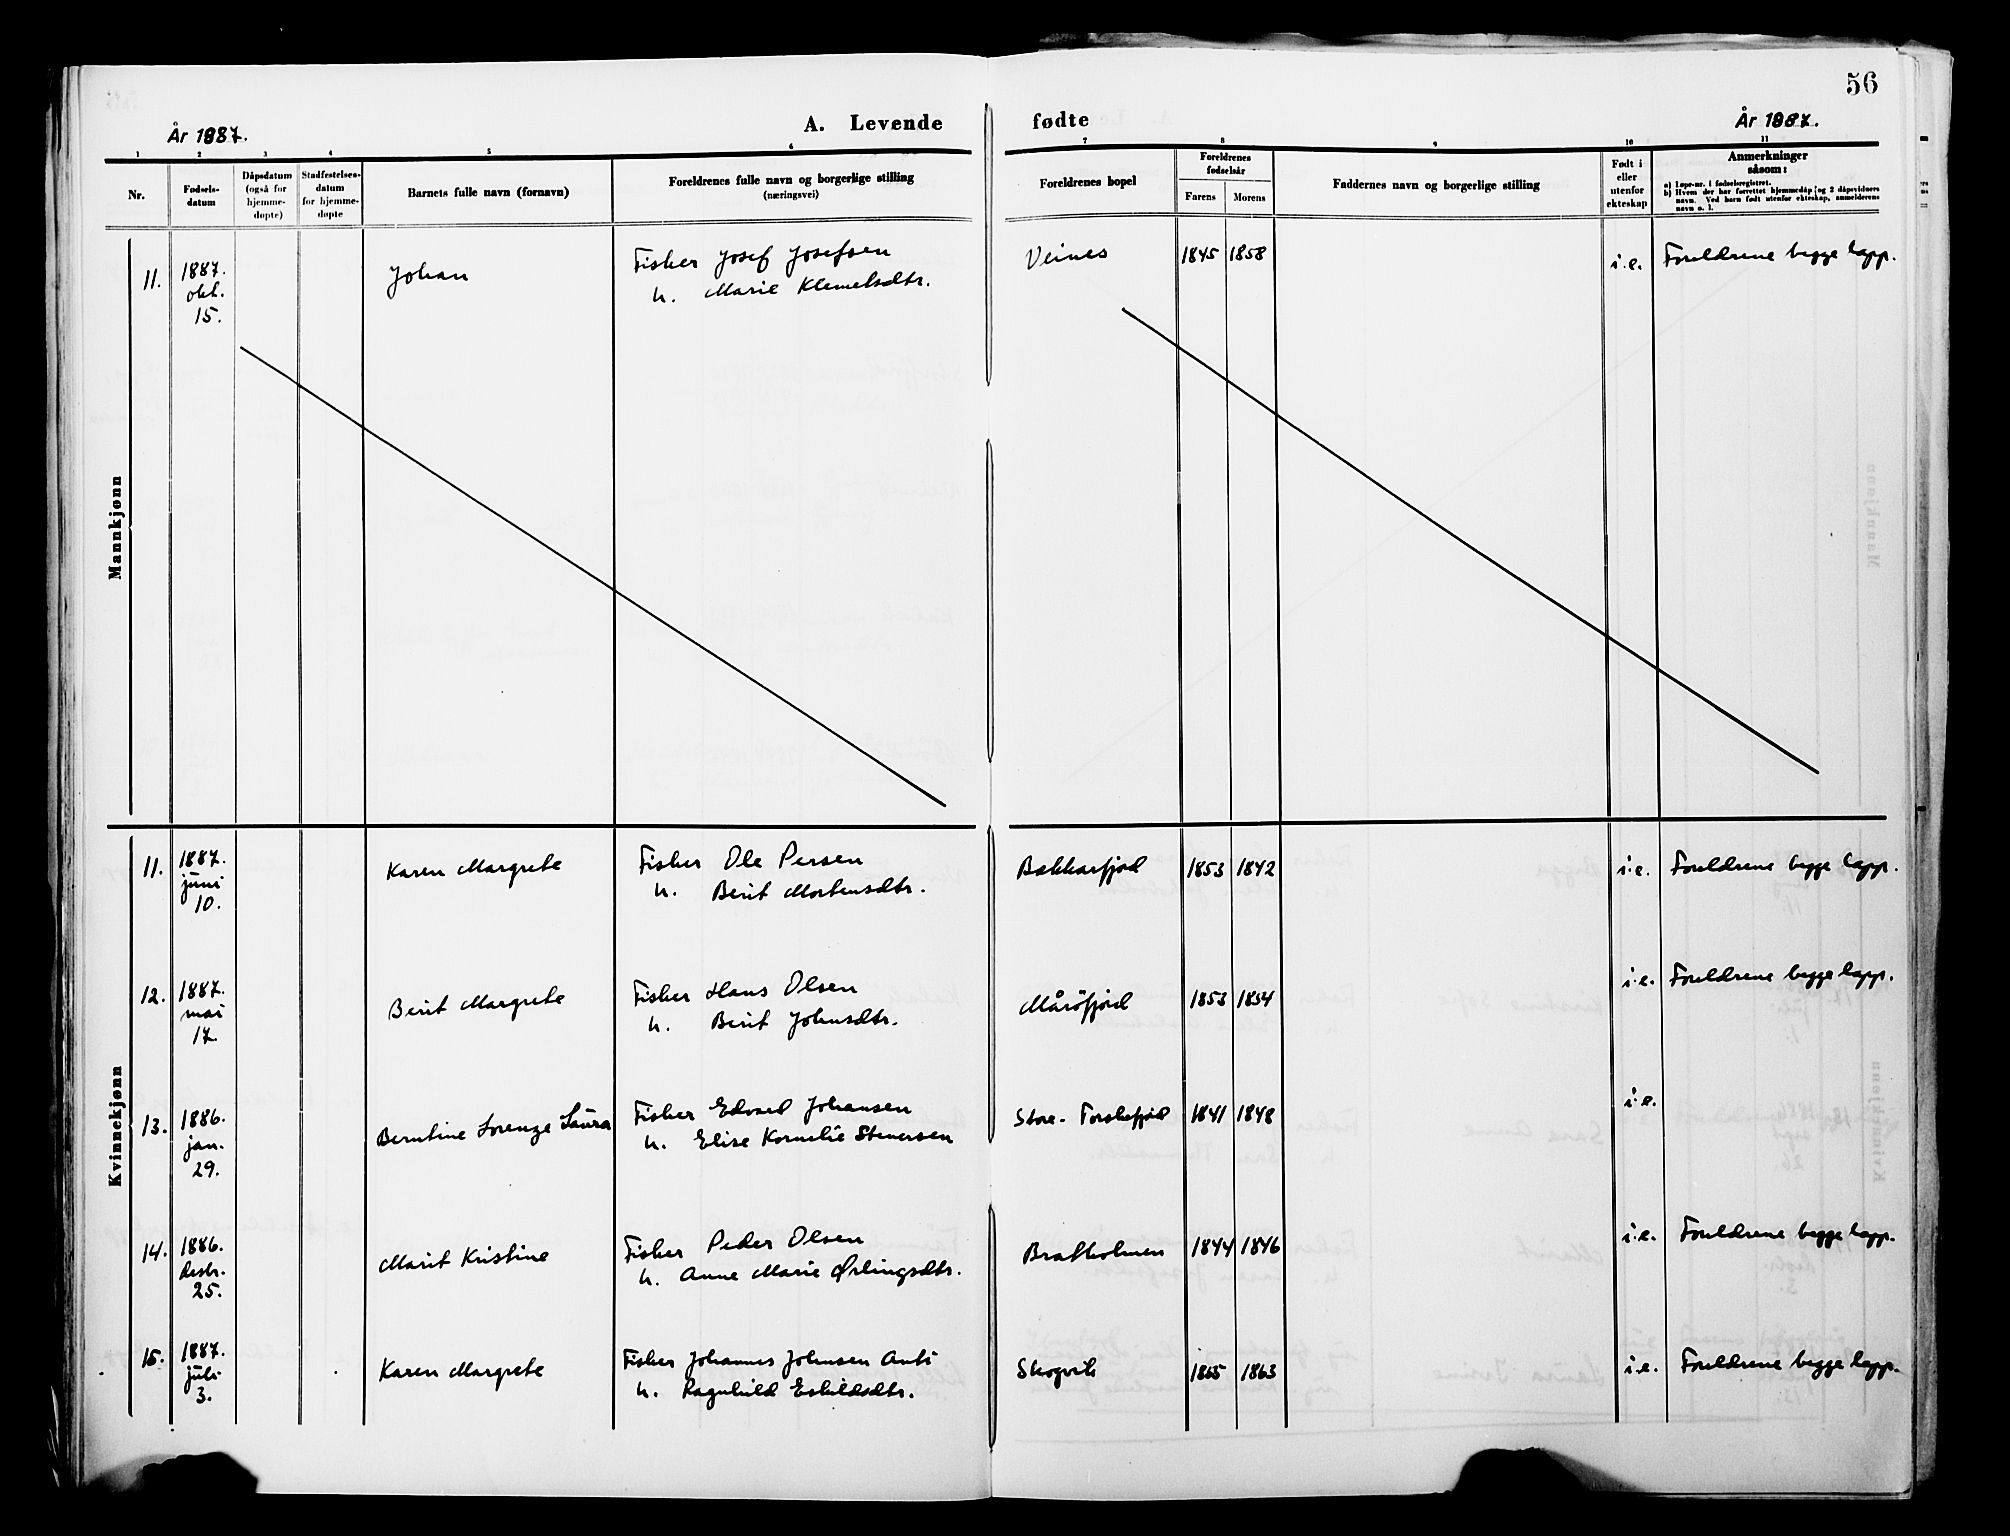 56
År 1887.
A. Levende fødte
År 1887.
1 2 3 4 5 6 7 8 9 10 11
Nr.
Fødsels-
datum
Dåpsdatum
(også for
hjemme-
døpte)
Stadfestelses-
datum
for hjemme-
døpte
Barnets fulle navn (fornavn)
Foreldrenes fulle navn og borgerlige stilling
(næringsvei)
Foreldrenes bopel
Foreldrenes
fødselsår
Farens Morens
Faddernes navn og borgerlige stilling
Født i
eller
utenfor
ekteskap
Anmerkninger
såsom:
a) Løpe-nr. i fødselsregistret.
b) Hvem der har forrettet hjemmedåp og 2 dåpsvidners
navn. Ved barn født utenfor ekteskap, anmelderens
navn o. l.
Mannkjønn
11. 1887. okt. 15. Johan
Fisker Josef Josefsen
h. Marie Klemetsdtr.
Veines 1845 1858 i.e. Foreldrene begge lapp.
Kvinnekjønn
11. 1887. juni 10. Karen Margrete
Fisker Ole Persen
h. Berit Mortensdtr.
Bakkarfjord 1853 1842 i.e. Foreldrene begge lapp.
12. 1887. mai 17. Berit Margrete
Fisker Hans Olsen
h. Berit Johnsdtr.
Mårøfjord 1853 1854 i.e. Foreldrene begge lapp.
13. 1886. jan. 29. Berntine Lorenze Laura
Fisker Edvard Johansen
h. Elise Kornelie Stenersen
Store-Torskefjord 1841 1848 i.e.
14. 1886. desbr. 25. Marit Kristine
Fisker Peder Olsen
h. Anne Marie Ørlingsdtr.
Bratholmen 1844 1846 i.e. Foreldrene begge lapp.
15. 1887. juli 3. Karen Margrete
Fisker Johannes Johnsen Anti
h. Ragnhild Eskildsdtr.
Skogvik 1865 1863 i.e. Foreldrene begge lapp.